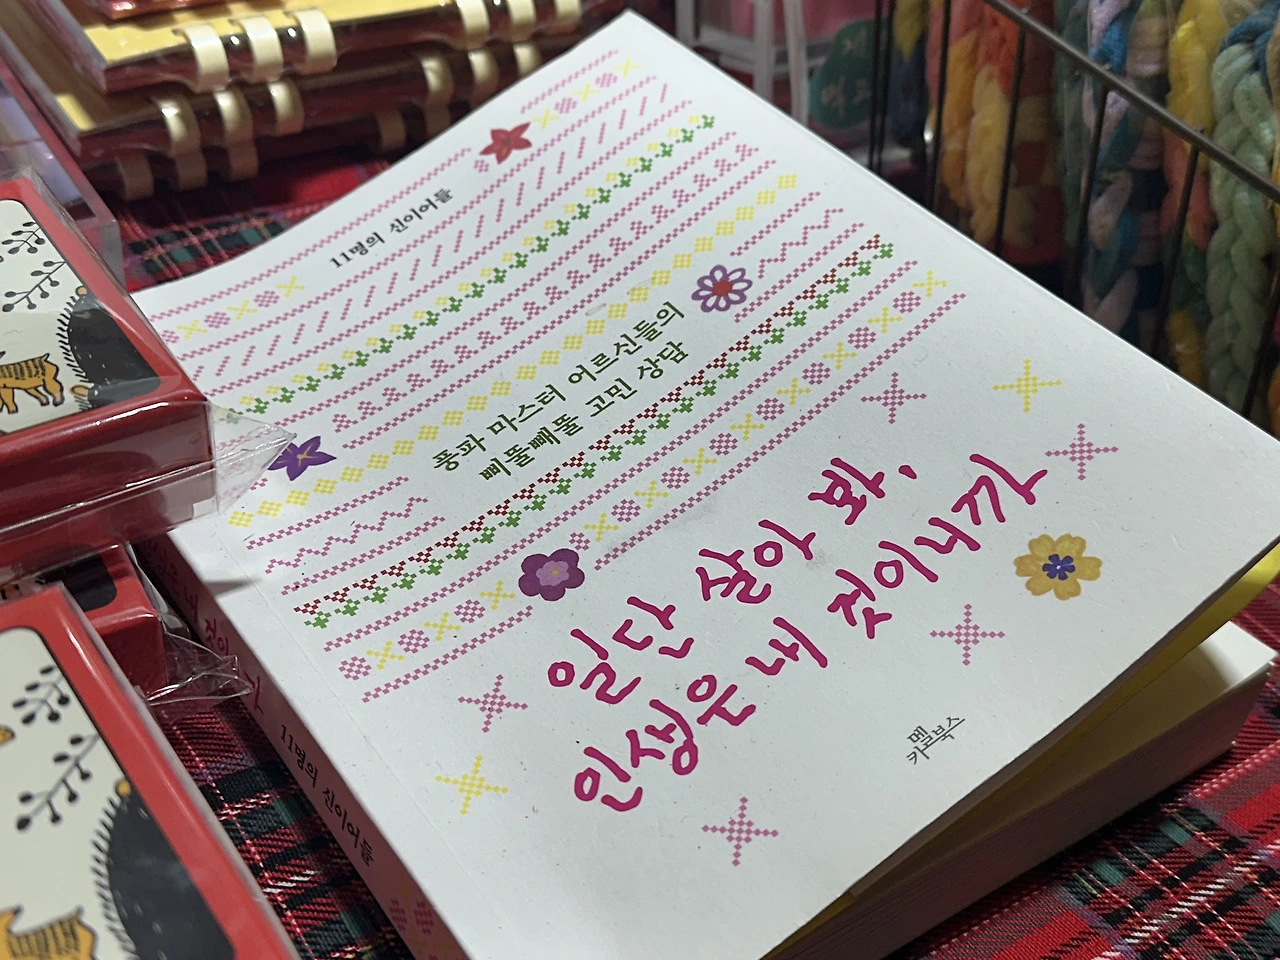 11명의 신이어들
풍파 마스터 어르신들의
삐뚤빼뚤 고민 상담
일단 살아 봐,
인생은 내 것이니까
멜
키로북스
11명의 신이어들